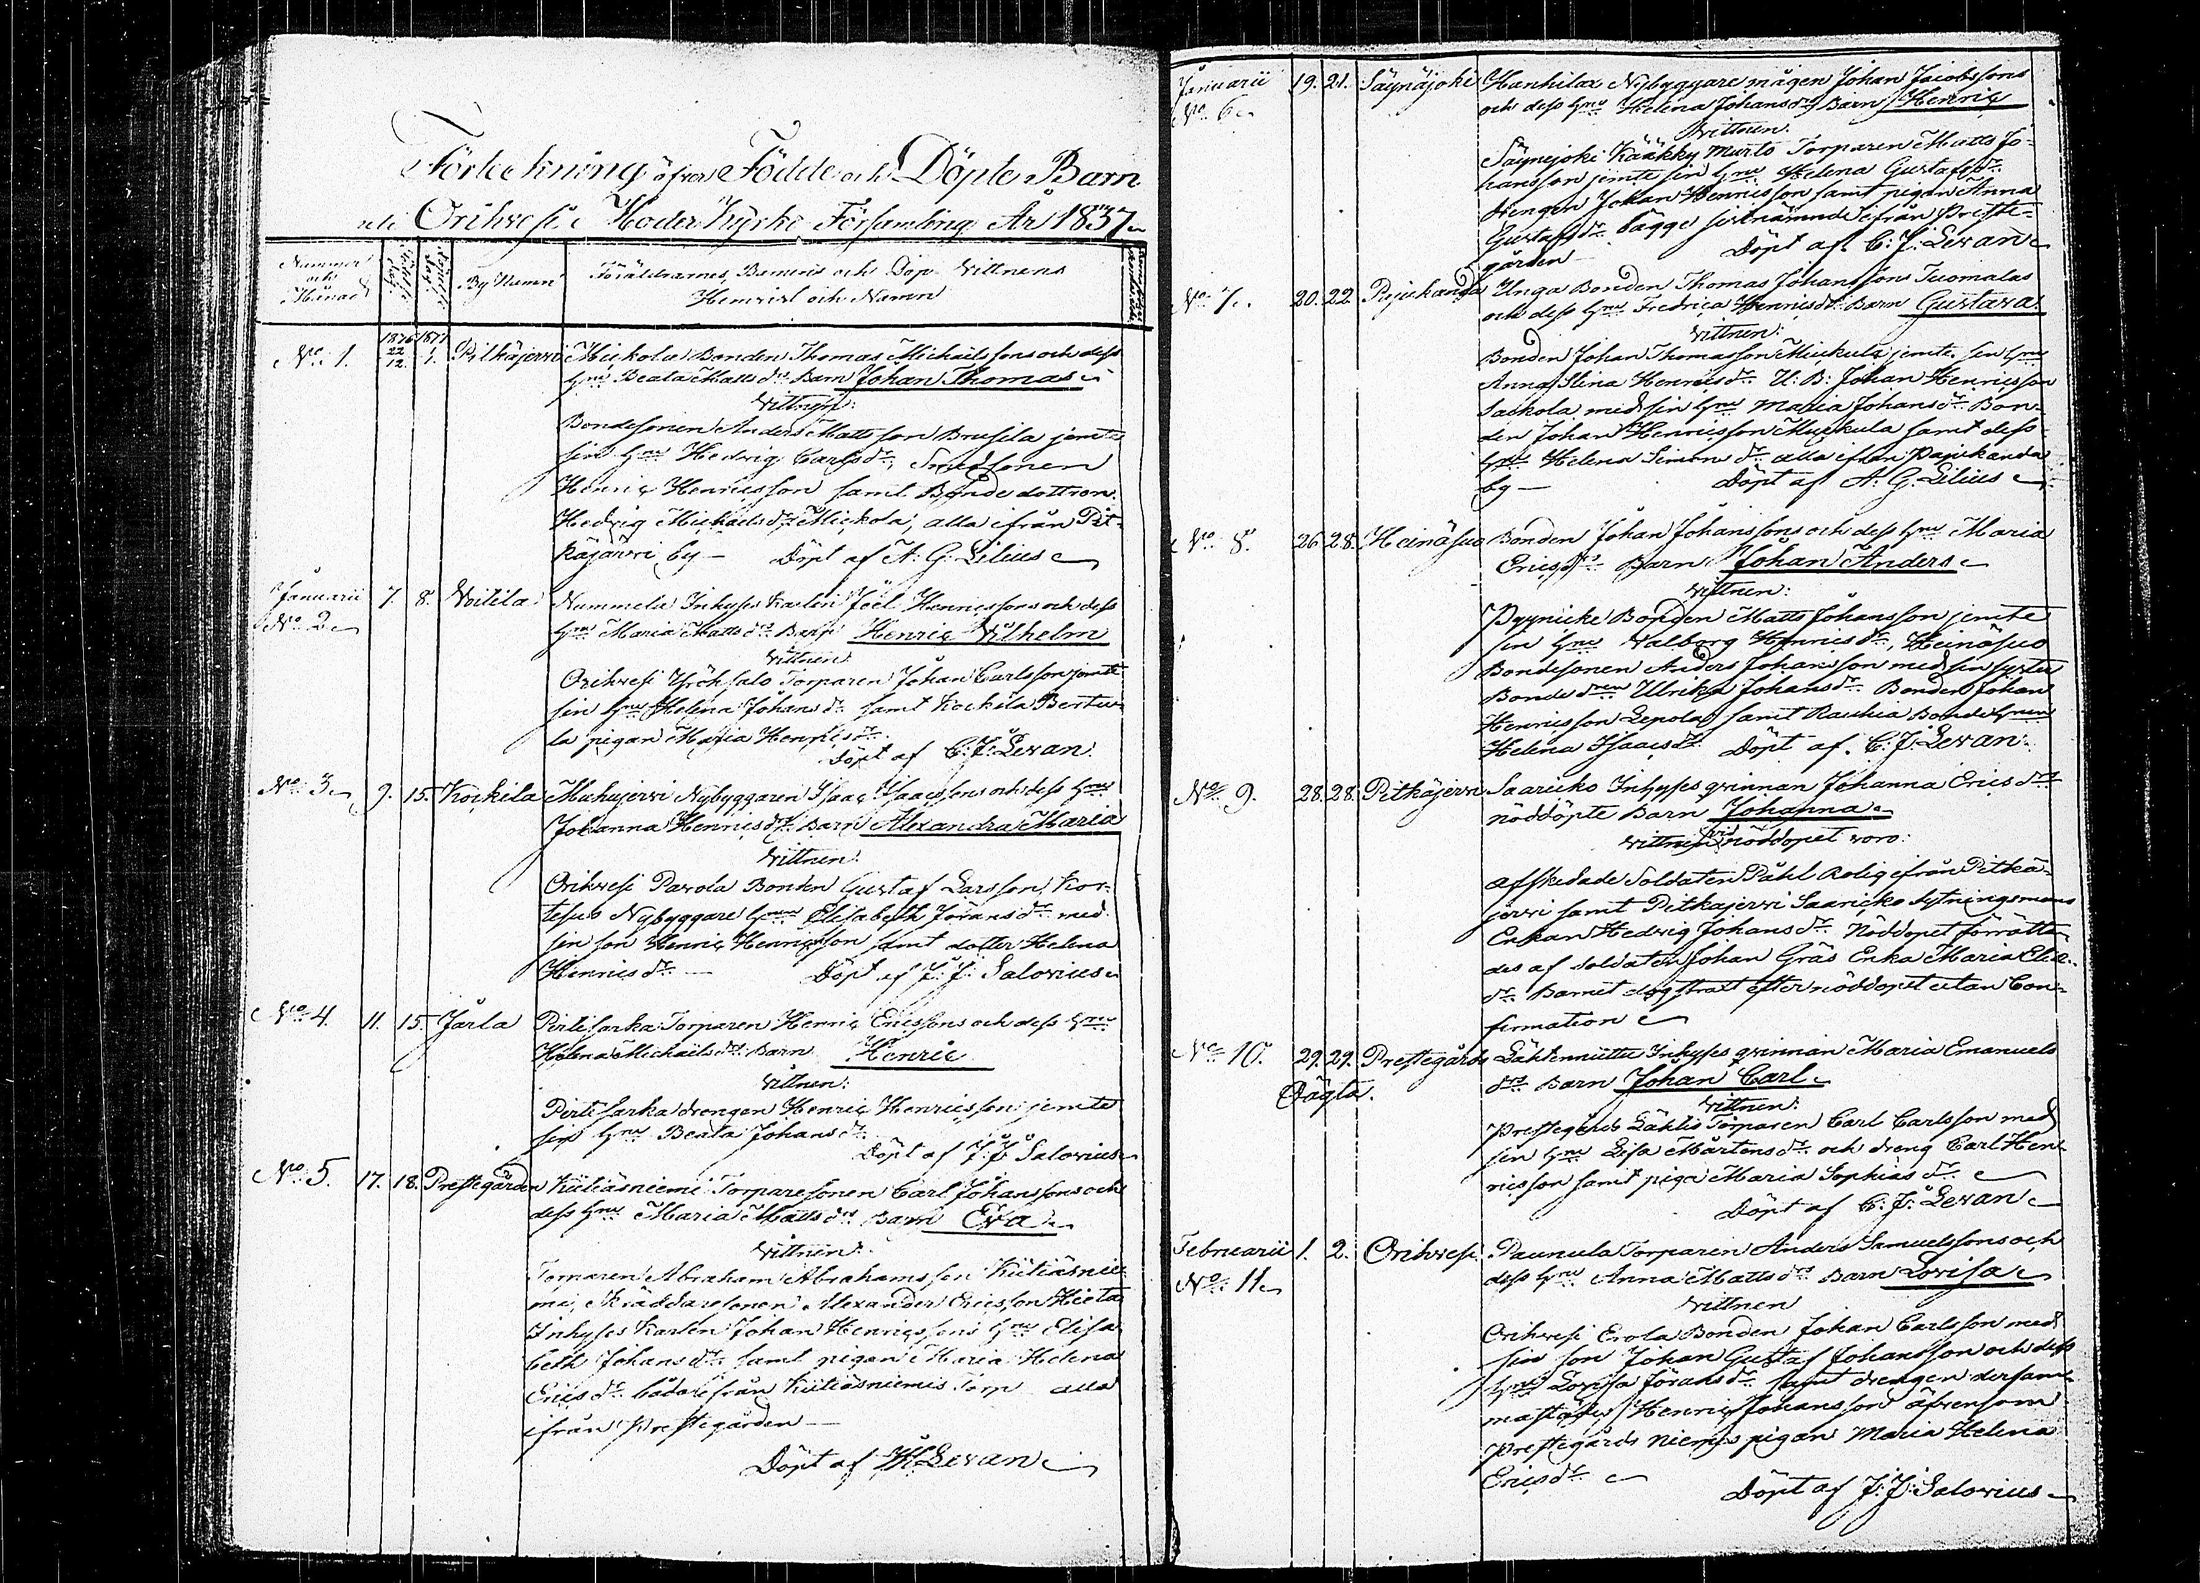 Förteckning öfver Födde och Döpte Barn
uti Orihvesi Moder Kyrko Församling År 1837
Nummer och Månad
Födelse dag
Döpelse dag
By Namn
Föräldrarnes, Barnens och Dop-Vittnens
Hemvist och Namn
No 1. 1836 22/12. 1837 1. Pitkäjerwi Mickola Bonden Thomas Michaelssons och dess
hru Beata Matts drs Barn Johan Thomas
Vittnen:
Bondesonen Anders Mattsson Brusila jemte
sin hru Hedvig Carlsdr,
Henric Henricsson samt Bonde dottren
Hedvig Michaelsdr Mickola, alla ifrån Pit-
käjärwi by — Döpt af A. G. Lilius
Januarii 7. 8. Voitila Nummela Inhyses Karlen Joel Henricssons och dess
No 2 hru Maria Matts drs Barn Henric Wilhelm
Vittnen
Orihvesi Yröhsalo Torparen Johan Carlsson jemte
sin hru Helena Johansdr samt Kockila Bertu-
la pigan Maria Henricsdr.
Döpt af C. J. Levan.
No 3 9. 15. Kockila Muhujerwi Nybyggaren Isaac Isaacssons och dess hrus
Johanna Henricsdrs Barn Alexandra Maria
Vittnen:
Orihvesi Pavola Bonden Gustaf Larsson, Kor-
tesuo Nybyggare hrun Elisabeth Jöransdr med
sin son Henric Henricsson samt dotter Helena
Henricsdr — Döpt af J. J. Salovius
No 4. 11. 15. Järla Pirtisarka Torparen Henric Ericssons och dess hrus
Helena Michaelsdrs Barn Henric
Vittnen:
Pirtisarka drengen Henric Henricsson jemte
sin hru Beata Johansdr
Döpt af J. J. Salovius
No 5. 17. 18. Prestegården Kiitiäsniemi Torparesonen Carl Johanssons och
dess hrus Maria Mattsdrs Barn Eva
Vittnen:
Torparen Abraham Abrahamsson Kiitiäsnie-
mi, Skräddaresonen Alexander Ericsson Hieta
Inhyses Karlen Johan Henricssons hru Elisa
beth Johansdr samt pigan Maria Helena
Ericsdr både ifrån Kiitiäsniemis Torp alla
ifrån Prestegården —
Döpt af Levan
Januarii 19. 21. Säynäjoki Hanhilax Nybyggare mågen Johan Jacobssons
No 6 och dess hrus Helena Johansdrs Barn Henric
Vittnen.
Säynejoki Kääkkymurto Torparen Matts Jo-
hansson jemte sin hru Helena Gustafsdr
drengen Johan Henricsson samt pigan Anna
Gustafsdr bägge sistnämnde ifrån Preste-
gården Döpt af C. J. Levan
No 7. 20. 22. Pajukanda Unga Bonden Thomas Johanssons Tuomalas
och dess hrus Fredrica Henricsdrs Barn Gustava.
Vittnen:
Bonden Johan Thomasson Muckula jemte sin hru
Anna Stina Henricsdr U: B: Johan Henricsson
Saskola med sin hru Maria Johansdr Bon-
den Johan Henricsson Muckula samt dess
hru Helena Simonsdr alla ifrån Pajukanda
by — Döpt af A. G. Lilius
No 8. 26. 28. Heinäsuo Bonden Johan Johanssons och dess hrus Maria
Ericsdrs Barn Johan Anders
Vittnen:
Pyynicke Bonden Matts Johansson jemte
sin hru Valborg Henricsdr, Heinäsuo
Bondesonen Anders Johansson med sin syster
Bonde dren Ulrika Johansdr Bonden Johan
Henricsson Lepola samt Rauhia Bonde hrun
Helena Isaacsdr Döpt af C. J. Levan.
No 9. 28. 28. Pitkäjerwi Saaricko Inhyses qvinnan Johanna Ericsdrs
nöddöpte Barn Johanna
Vittnen vid nöddopet voro:
afskedade Soldaten Påhl Rolig ifrån Pitkä-
jerwi samt Pitkajerwi Saaricko Sytningsmans
Enkan Hedvig Johansdr. Nöddopet förrätta-
des af soldaten Johan Gräs Enka Maria Elia-
dr. Barnet dog strax efter nöddopet utan Con-
firmation
No 10. 29. 29. Prestegårds Läktenniittu Inhyses qvinnan Maria Emanuels
Oägta. drs Barn Johan Carl
Vittnen:
Prestegårds Läktis Torparen Carl Carlsson med
sin hru Lisa Mårtensdr och dreng Carl Hen-
ricsson samt piga Maria Sophias dr
Döpt af C. J. Levan
Februarii 1. 2. Orihvesi Paunula Torparen Anders Samuelssons och
No 11 dess hrus Anna Mattsdrs Barn Lovisa
Vittnen
Orihvesi Erola Bonden Johan Carlsson med
sin son Johan Gustaf Johansson och dess
hru Lovisa Jöransdr samt drengen dersam-
mastädes Henric Johansson äfvensom
Prestegårds Niemis pigan Maria Helena
Ericsdr
Döpt af J. J. Salovius